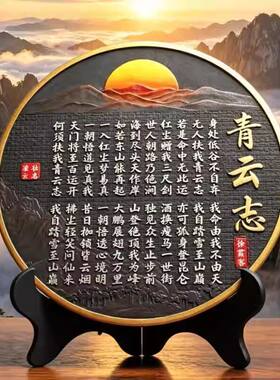 青云志
徐霞客
身处低谷不自弃 我命由我不由天
无人扶我青云志 我自踏雪至山巅
若是命中无此运 亦可孤身登昆仑
红尘赠我三尺剑 酒换瘦马一世街
世人朝路乃绝涧 独见众生止步前
海到尽头天作岸 山登绝顶我为峰
如若东山能再起 大鹏展翅九万里
一入红尘梦易真 一朝悟透心境明
一朝悟道见真我 昔日枷锁皆云烟
天门将至百运开 拂尘轻笑问仙来
何须扶我青云志 我自踏雪至山巅
壮志
凌云